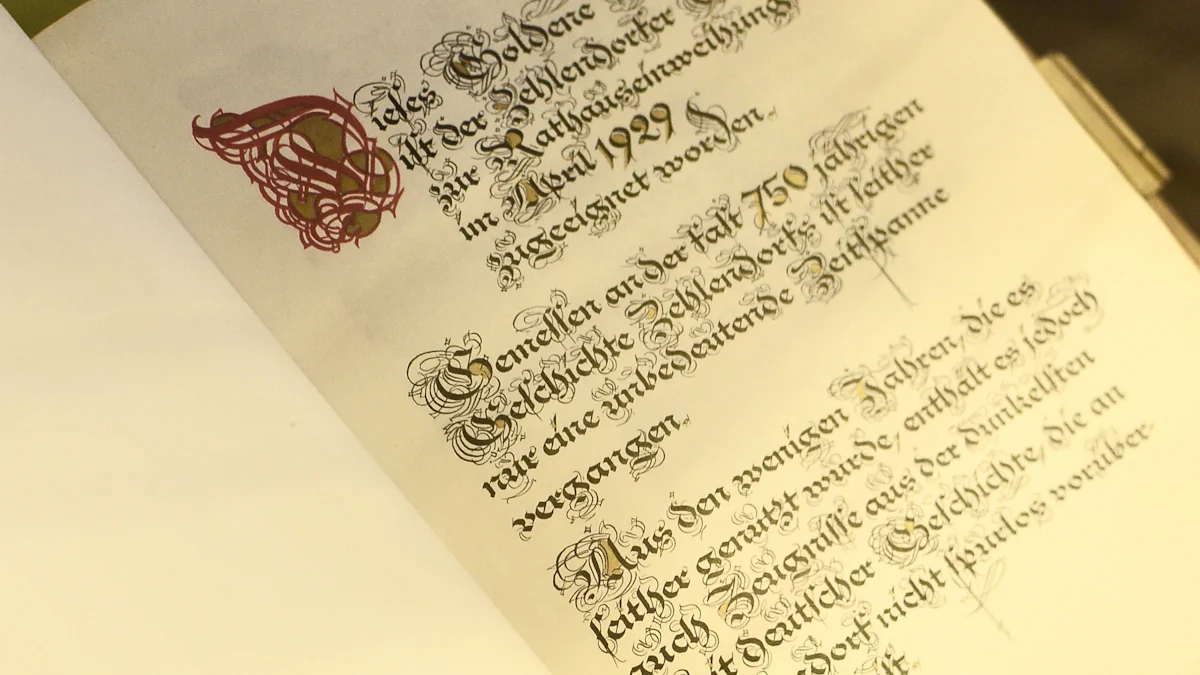 Dieses Goldene
ist der Zehlendorfer
zur Rathauseinweihung
im April 1929
zugeeignet worden.
Gemessen an der fast 750 jährigen
Geschichte Zehlendorfs ist seither
nur eine unbedeutende Zeitspanne
vergangen.
Aus den wenigen Jahren, die es
seither genutzt wurde, enthält es jedoch
auch Zeugnisse aus der dunkelsten
deutscher Geschichte, die an
nicht spurlos vorüber